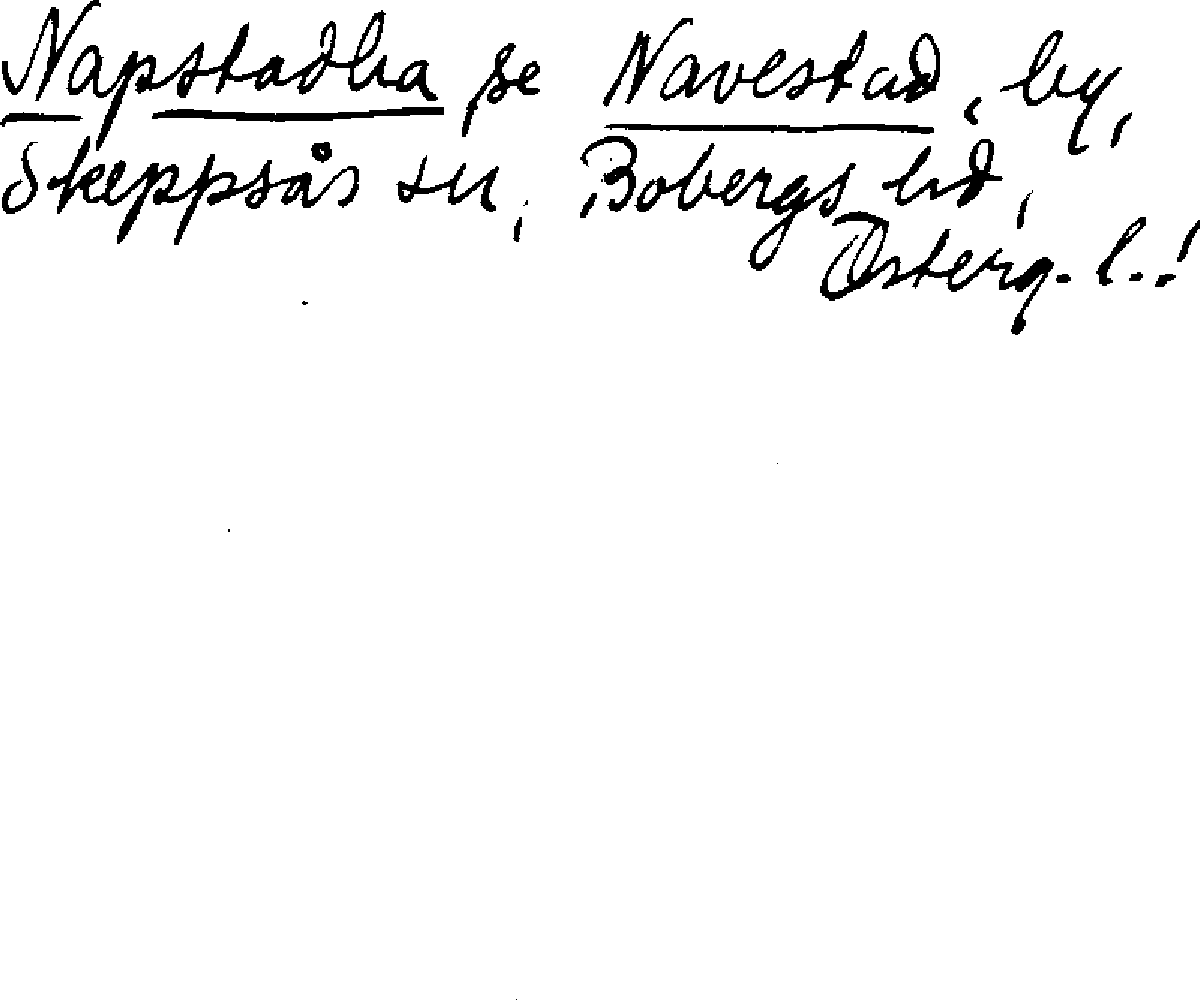 Napstadha se Navestad, by,
Skeppsås sn, Bobergs hd,
Österg. l..!